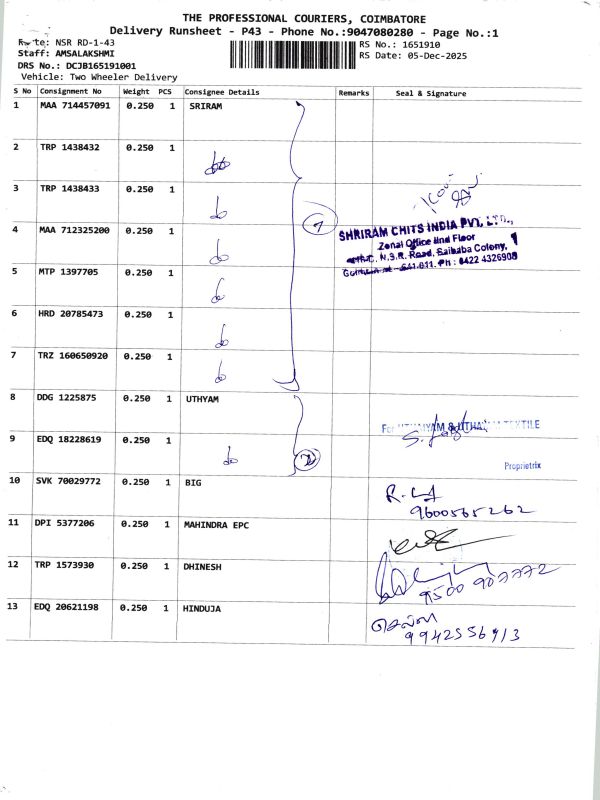 THE PROFESSIONAL COURIERS, COIMBATORE
Delivery Runsheet - P43 - Phone No.:9047080280 - Page No.:1
Route: NSR RD-1-43
RS No.: 1651910
Staff: AMSALAKSHMI
RS Date: 05-Dec-2025
DRS No.: DCJB165191001
Vehicle: Two Wheeler Delivery
S No Consignment No Weight PCS Consignee Details Remarks Seal & Signature
1 MAA 714457091 0.250 1 SRIRAM
2 TRP 1438432 0.250 1
3 TRP 1438433 0.250 1
4 MAA 712325200 0.250 1
7
SHRIRAM CHITS INDIA PVT. LTD.,
Zonal Office IInd Floor
N.S.R. Road, Saibaba Colony,
641 011. Ph : 0422 4326908
5 MTP 1397705 0.250 1
6 HRD 20785473 0.250 1
7 TRZ 160650920 0.250 1
8 DDG 1225875 0.250 1 UTHYAM
For TEXTILE
9 EDQ 18228619 0.250 1
2
Proprietrix
10 SVK 70029772 0.250 1 BIG
9600565262
11 DPI 5377206 0.250 1 MAHINDRA EPC
12 TRP 1573930 0.250 1 DHINESH
9500 907772
13 EDQ 20621198 0.250 1 HINDUJA
செல்வி